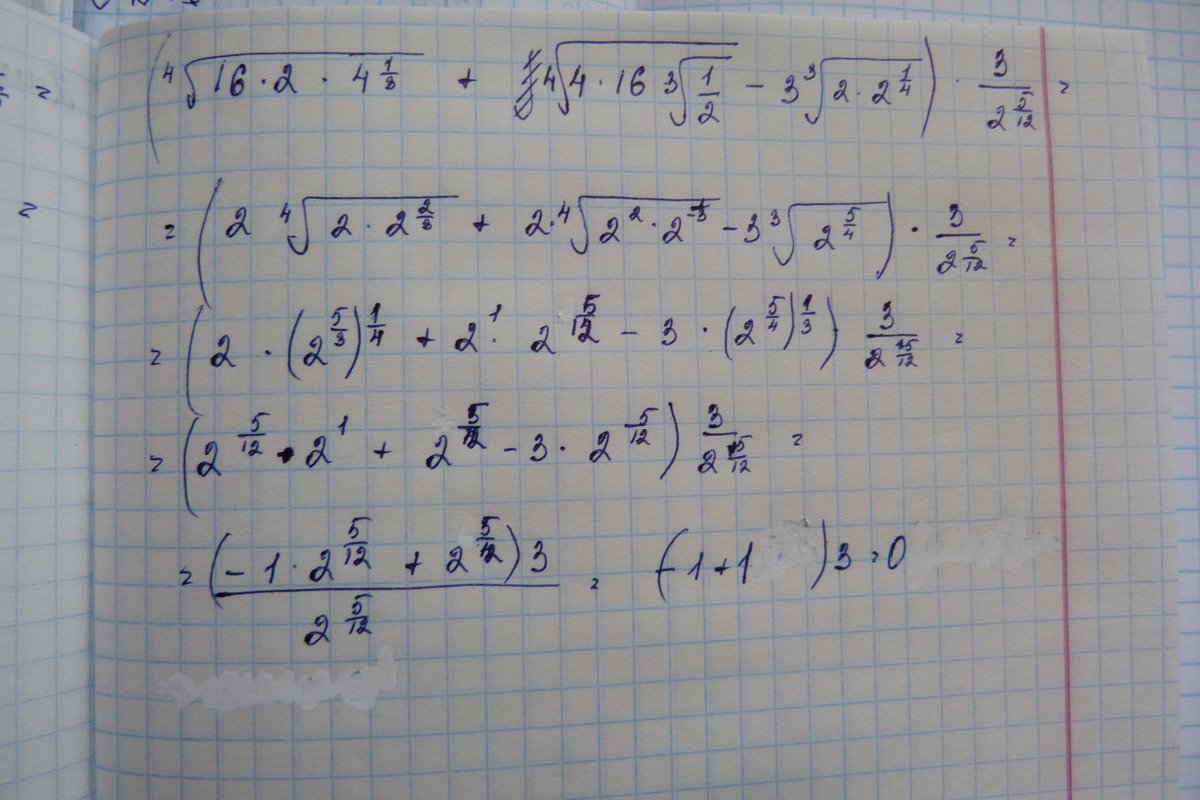 (⁴√(16 · 2 · 4^(1/3)) + ⁴√(4 · 16 ³√(1/2)) - 3 ³√(2 · 2^(1/4))) · 3/2^(5/12) =
= (2 ⁴√(2 · 2^(2/3)) + 2 · ⁴√(2² · 2^(-1/3)) - 3 ³√(2^(5/4))) · 3/2^(5/12) =
= (2 · (2^(5/3))^(1/4) + 2¹ · 2^(5/12) - 3 · (2^(5/4))^(1/3)) 3/2^(5/12) =
= (2^(5/12) · 2¹ + 2^(5/12) - 3 · 2^(5/12)) 3/2^(5/12) =
= (-1 · 2^(5/12) + 2^(5/12))3 / 2^(5/12) = (-1+1)3 = 0